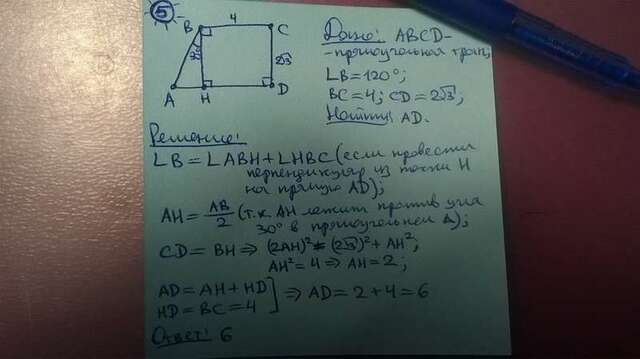 5
4
B
C
2√3
2√3
A
H
D
Дано: ABCD-
-прямоугольная трап;
∠B=120°;
BC=4; CD=2√3;
Найти: AD.
Решение:
∠B=∠ABH+∠HBC(если провести
перпендикуляр из точки H
на прямую AD);
AH=AB/2 (т.к. AH лежит против угла
30° в прямоугольнем Δ);
CD=BH⇒(2AH)²=(2√3)²+AH²;
AH²=4⇒AH=2;
AD=AH+HD
HD=BC=4 ] ⇒AD=2+4=6
Ответ: 6